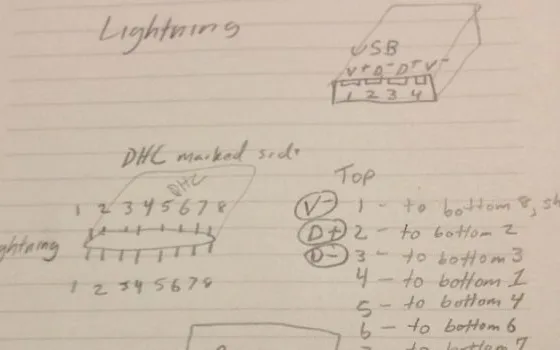 Lightning
USB
V+ D- D+ V-
1 2 3 4
DHC marked side
DHC
1 2 3 4 5 6 7 8
ghtning
1 2 3 4 5 6 7 8
Top
V- 1 - to bottom 8, sh
D+ 2 - to bottom 2
D- 3 - to bottom 3
4 - to bottom 1
5 - to bottom 4
6 - to bottom 6
to bottom 7